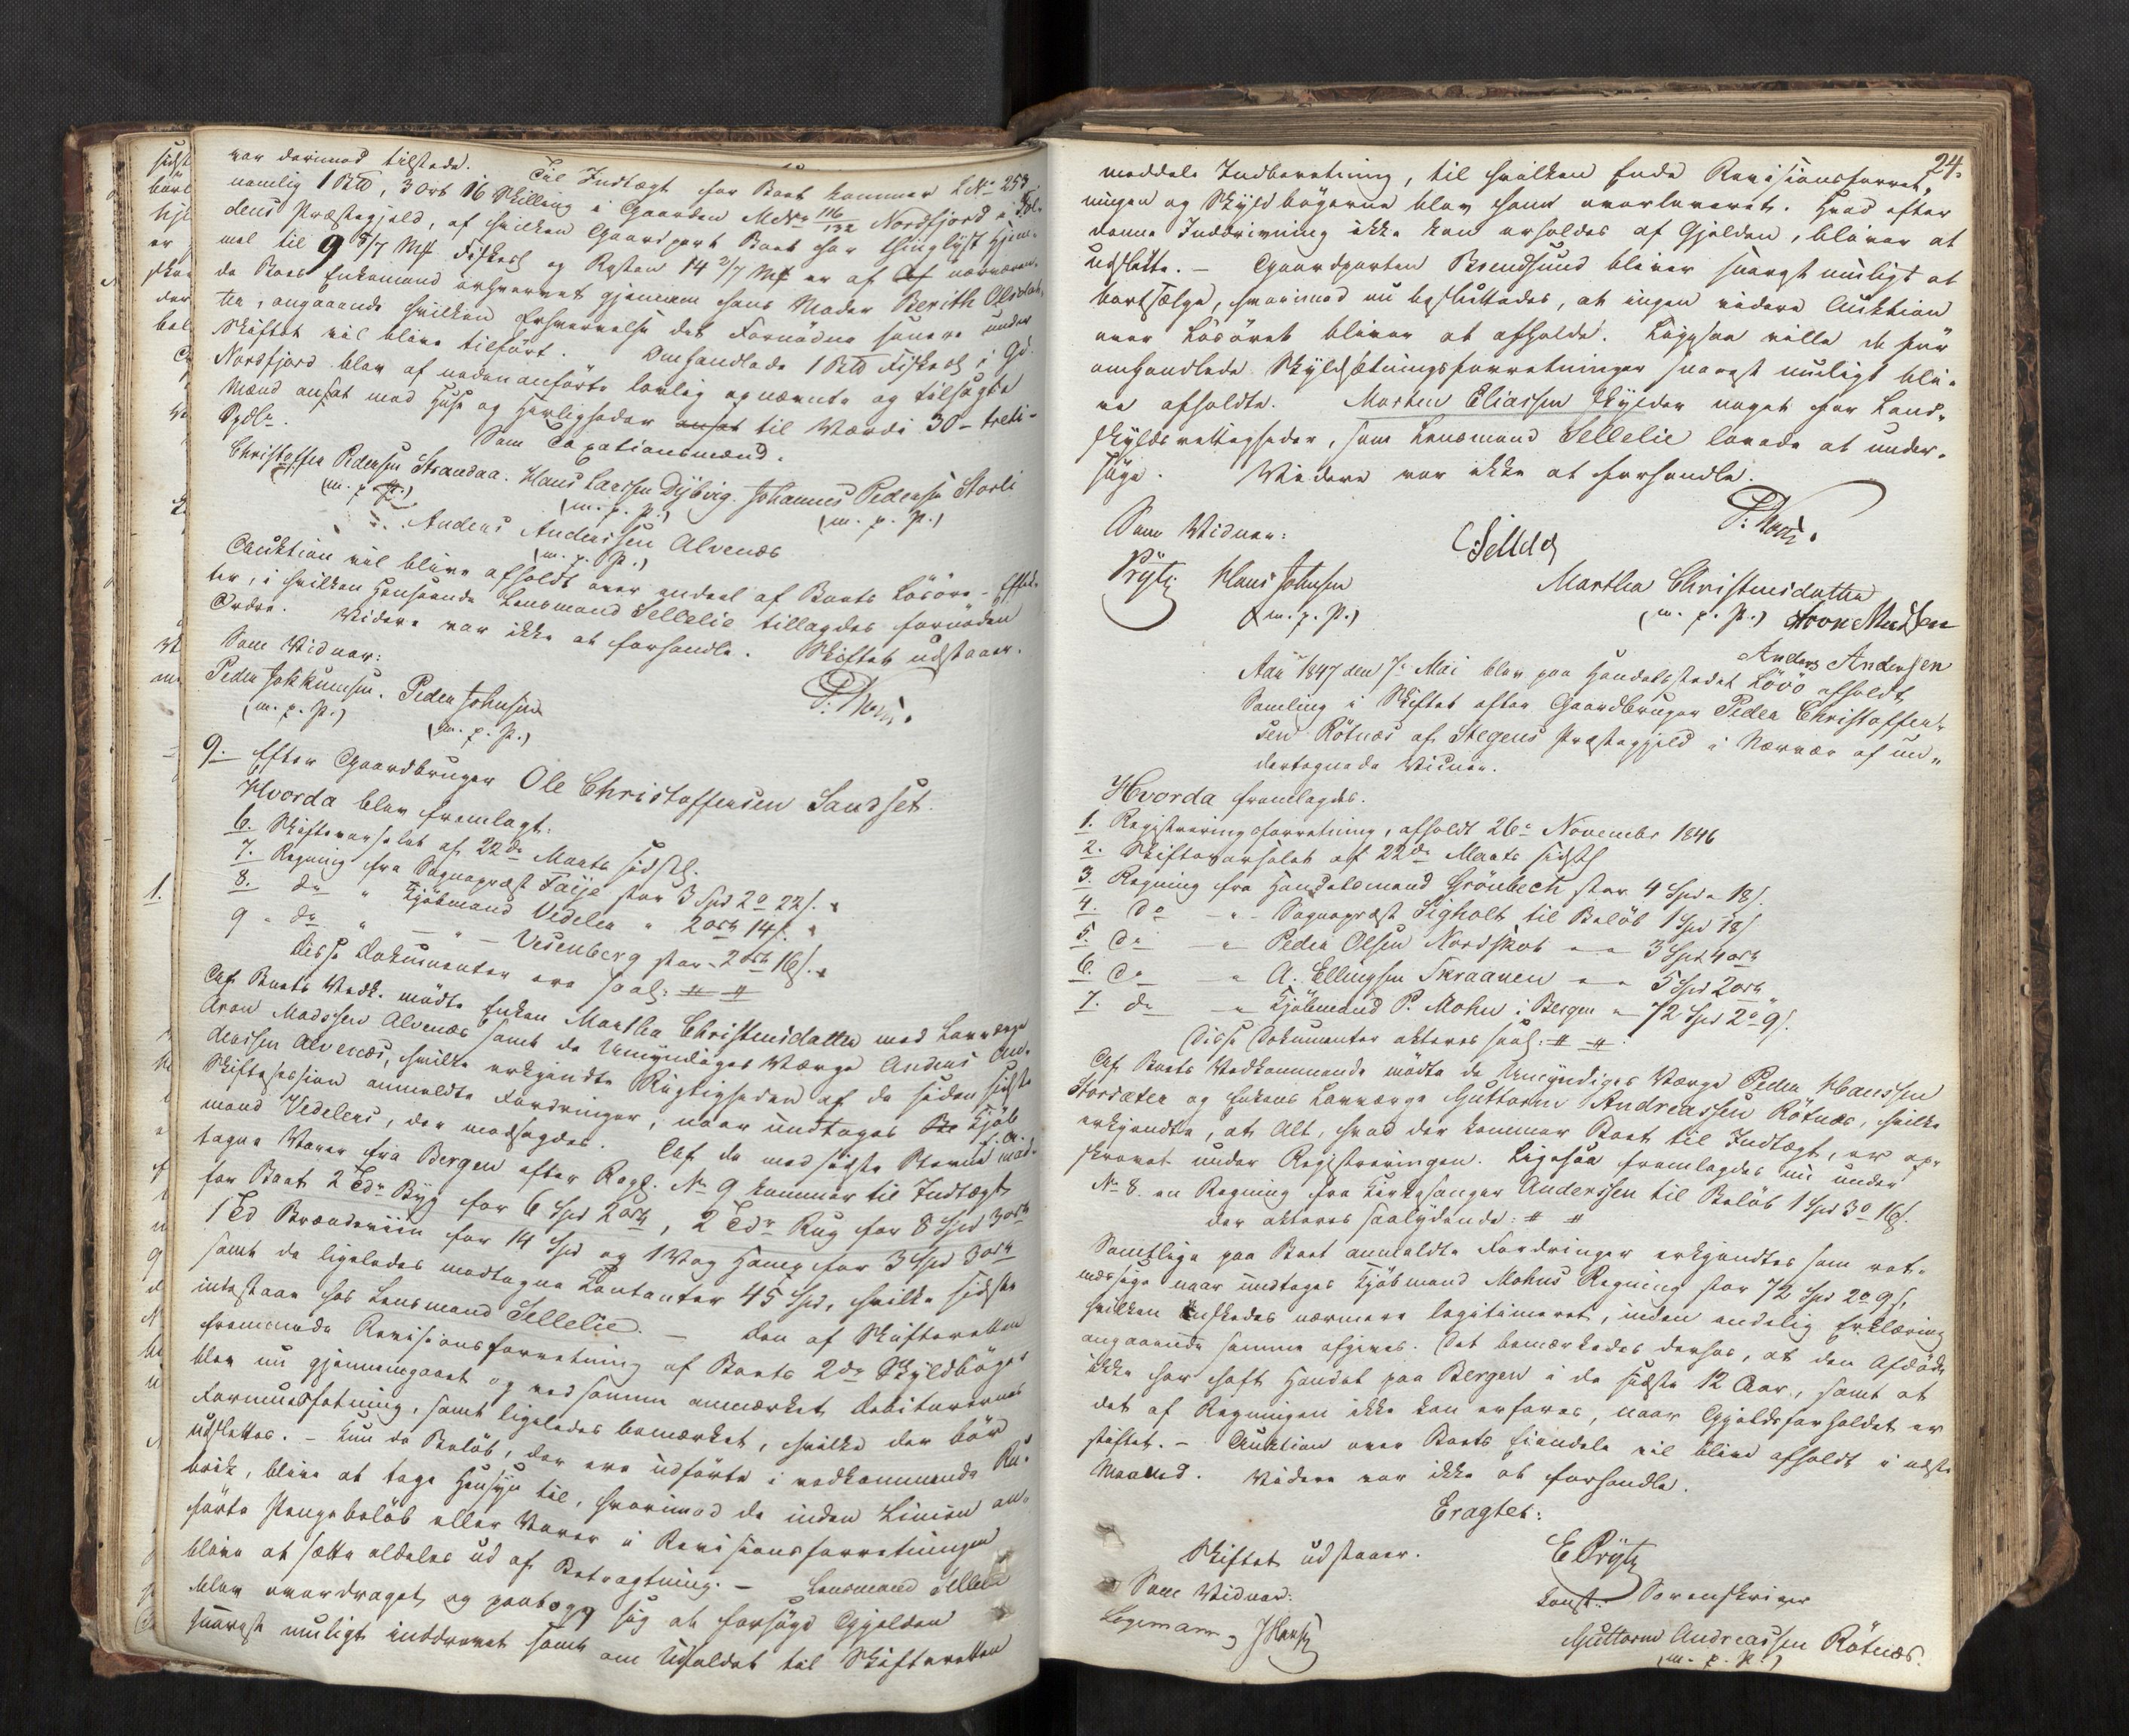 var derimod tilstede. Til Indtægt for Boet kommer L No 253
nemlig 1 Pd, 3 Ort 16 Skilling i Gaarden MNo 116/132 Nordfjord i
dens Præstegjeld, af hvilken Gaardpart Boet har thinglyst Hjem-
mel til 9 5/7 Mk Fiskesl og Resten 14 2/7 Mk er af nærværen-
de Boes Enkemand erhvervet gjennem hans Moder Berith Olsdat-
ter, angaaende hvilken Erhvervelse det Fornödne senere under
Skiftet vil blive tilfört. Omhandlede 1 Pd Fiskesl i Gd.
Nordfjord blev af nedenanförte lovlig opnævnte og tilsagte
Mænd ansat med Huse og Herligheder til Værdi 30 - treti-
Spdlr. Som Taxationsmænd.
Christoffer Pedersen Strandaa. Hans Larssen Dybvig. Johannes Pedersen Storli
(m. p. P.) (m. p. P.) (m. p. P.)
Anders Anderssen Alvenæs
(m. p. P.)
Auktion vil blive afholdt over endeel af Boets Lösöre-Effek-
ter, i hvilken Henseende Lensmand Sellelie tillagdes fornöden
Ordre. Videre var ikke at forhandle. Skiftet udstaaer.
Som Vidner:
Peder Jokkumsen. Peder Johnsen
(m. p. P.) (m. p. P.)
9. Efter Gaardbruger Ole Christoffersen Sandset.
Hvorda blev fremlagt:
6. Skiftevarselet af 22de Marts sidstl.
7. Regning fra Sognepræst Faije stor 3 Spd 2 o 22 s.
8. do " Kjöbmand Vedeler " 2 ort 14 s.
9 do " — " — Vesenberg stor - 2 ort 16 s.
disse Dokumenter ere saal: # #
Af Boets Vedk. mödte Enken Martha Christensdatter med Laugværge
Aron Madssen Alvenæs samt de Umyndiges Værge Anders An-
derssen Alvenæs, hvilke erkjendte Rigtigheden af de siden sidste
Skiftesession anmeldte Fordringer, naar undtages Kjöb-
mand Vedelers, der modsagdes. Af de med sidste Stevne mod-
tagne Varer fra Bergen efter Regl. No 9 kommer til Indtægt
for Boet 2 Tdr Byg for 6 Spd 2 ort, 2 Tdr Rug for 8 Spd 3 ort
1 Td Brændeviin for 14 Spd og 1 Vog Hamp for 3 Spd 3 ort
samt de ligeledes modtagne Contanter 45 Spd, hvilke sidste
indestaar hos Lensmand Sellelie. — Den af Skifteretten
fremmede Revisionsforretning af Boets 2de Skyldböger
blev nu gjennemgaaet og ved samme anmærket Debitorernes
Formuesfatning, samt ligeledes bemærket, hvilke der bör
udslettes. — Kun de Belöb, der ere udförte i vedkommende Ru-
brik, blive at tage Hensyn til, hvorimod de inden Linien an-
förte Pengebelöb eller Varer i Revisionsforretningen
blive at sætte aldeles ud af Betragtning. — Lensmand Sellelie
blev overdraget og paatog sig at forsöge Gjelden
snarest muligt inddrevet samt om Udfaldet til Skifteretten
24.
meddele Indberetning, til hvilken Ende Revisionsforret-
ningen og Skyldbögerne blev ham overleveret. Hvad efter
denne Inddrivning ikke kan erholdes af Gjelden, bliver at
udslette. — Gaardparten Brendsund bliver snarest muligt at
bortsælge, hvorimod nu besluttedes, at ingen videre Auktion
over Lösöret bliver at afholde. Ligesaa ville de før
omhandlede Skyldsætningsforretninger snarest muligt bli-
ve afholdte. Morten Eliassen skylder noget for Land-
skyldsrettigheder, som Lensmand Sellelie lovede at under-
söge. Videre var ikke at forhandle.
Som Vidner:
Prytz Hans Johnsen
(m. p. P.)
Martha Christensdatter
(m. p. P.) Aron Madssen
Anders Andersen
Aar 1847 den 7. Mai blev paa Handelsstedet Lövö afholdt
Samling i Skiftet efter Gaardbruger Peder Christoffer-
sen Rötnæs af Stegens Præstegjeld i Nærvær af un-
dertegnede Vidner.
Hvorda fremlagdes.
1. Registreringsforretning, afholdt 26. November 1846
2. Skiftevarselet af 22de Marts sidstl
3. Regning fra Handelsmand Grönbech stor 4 Spd " 18 s.
4. do — " — Sognepræst Sigholt til Belöb 1 Spd 18 s
5. do — " Peder Olsen Nordskot " " 3 Spd 4 ort
6. do — " A. Ellingsen Skraaven " " 5 Spd 2 ort
7. do — " Kjöbmand P. Mohn i Bergen " 72 Spd 2 o 9 s.
Disse Dokumenter akteres saal: # #.
Af Boets Vedkommende mödte de Umyndiges Værge Peder Hanssen
Storsæter og Enkens Laugværge Guttorm Andreassen Rötnæs, hvilke
erkjendte, at Alt, hvad der kommer Boet til Indtægt, er op-
skrevet under Registreringen. Ligesaa fremlagdes nu under
No 8. en Regning fra Kirkesanger Anderssen til Belöb 1 Spd 3 o 16 s.
der akteres saalydende: # #
Samtlige paa Boet anmeldte Fordringer erkjendtes som ret-
mæssige naar undtages Kjöbmand Mohns Regning stor 72 Spd 2 o 9 s,
hvilken önskedes nærmere legitimeret, inden endelig Erklæring
angaaende samme afgives. Det bemærkedes derhos, at den Afdöde
ikke har havt Handel paa Bergen i de sidste 12 Aar, samt at
det af Regningen ikke kan erfares, naar Gjeldsforholdet er
stiftet. — Auktion over Boets Eiendele vil blive afholdt i næste
Maaned. Videre var ikke at forhandle.
Eragtet:
Skiftet udstaaer. E Prytz
Som Vidner: Const. Sorenskriver
Logemann, J Hansen Guttorm Andreassen Rötnæs.
(m. p. P.)